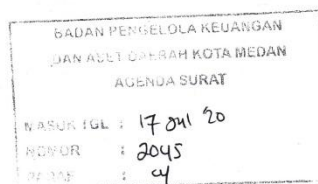 BADAN PENGELOLA KEUANGAN
DAN ASET DAERAH KOTA MEDAN
AGENDA SURAT
MASUK TGL : 17 Jul '20
NOMOR : 2045
PARAF :